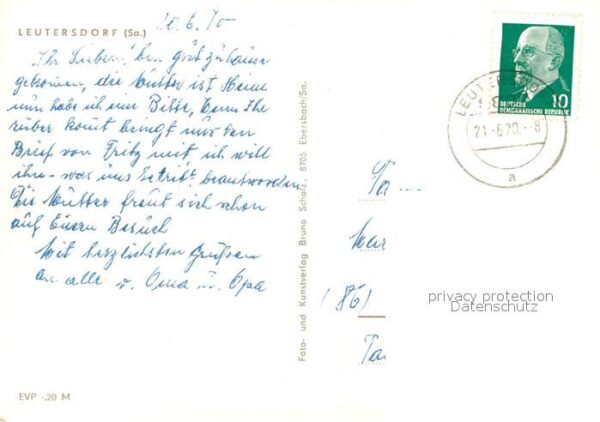 20.6.70
LEUTERSDORF (Sa.)
Ihr Lieben! bin gut zuhause
gekommen, die Mutter ist Heime
nun habe ich eine Bitte, wenn Ihr
rüber komt bringt mir den
Brief von Fritz mit ich will
ihn - was uns betrift beantworden
Die Mutter freut sich schon
auf Euern Besuch
Mit herzlichsten Grüßen
an alle v. Oma u. Opa
EVP -,20 M
Foto- und Kunstverlag Bruno Scholz, 8705 Ebersbach/Sa.
DEUTSCHE
DEMOKRATISCHE REPUBLIK
10
LEUTERSDO
21.-6.70.-8
a
Fa
Mar
(86)
Ta
privacy protection
Datenschutz